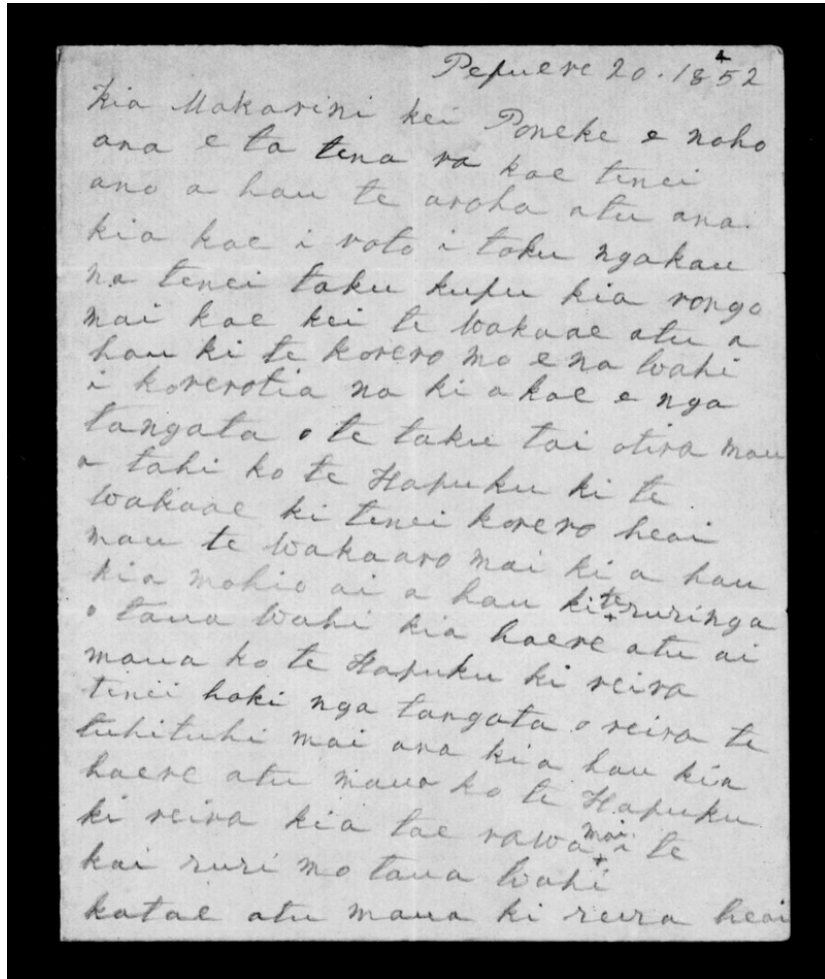 Pepuere 20. 1852
kia Makarini kei Poneke e noho
ana e ta tena ra koe tenei
ano a hau te aroha atu ana.
kia koe i roto i toku ngakau
na tenei taku kupu kia rongo
mai koe kei te wakaae atu a
hau ki te korero mo e na wahi
i korerotia na ki a koe e nga
tangata o te taku tai otira mau
a tahi ko te Hapuku ki te
wakaae ki tenei korero heoi
mau te wakaaro mai ki a hau
kia mohio ai a hau ki te ruringa
o taua wahi kia haere atu ai
maua ko te Hapuku ki reira
tenei hoki nga tangata o reira te
tuhituhi mai ana kia hau kia
haere atu maua ko te Hapuku
ki reira kia tae rawa mai i te
kai ruri mo taua wahi
katae atu maua ki reira heoi